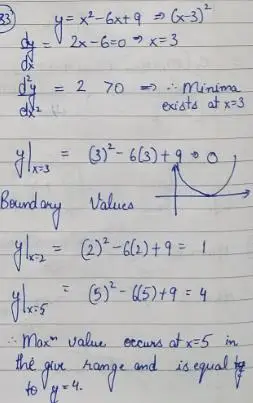 33) y = x² - 6x + 9 ⇒ (x-3)²
dy/dx = 2x - 6 = 0 ⇒ x = 3
d²y/dx² = 2 > 0 ⇒ ∴ Minima
exists at x=3
y|x=3 = (3)² - 6(3) + 9 ⇒ 0
Boundary Values
y|x=2 = (2)² - 6(2) + 9 = 1
y|x=5 = (5)² - 6(5) + 9 = 4
∴ Maxᵐ value occurs at x=5 in
the give range and is equal
to y = 4.